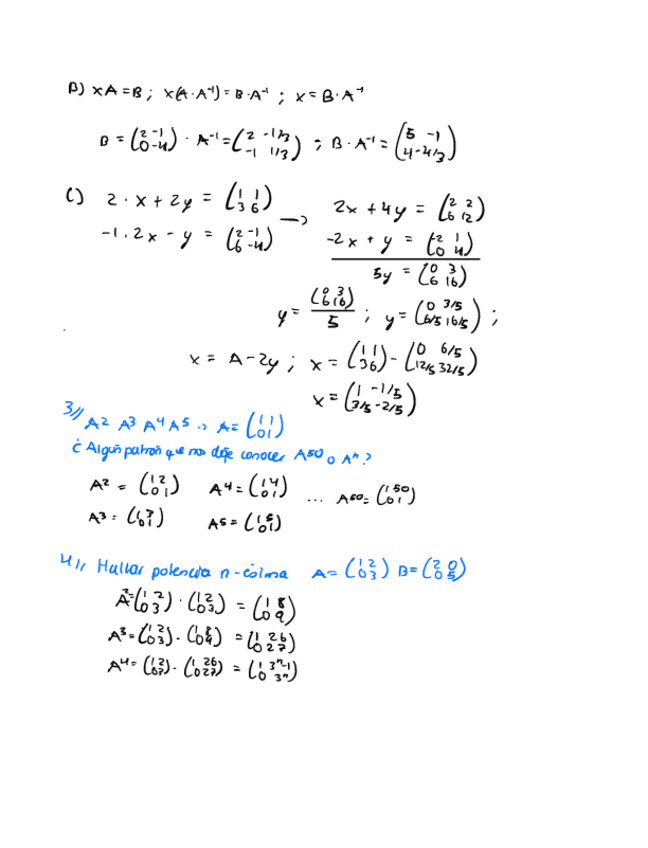 B) xA = B ; x(A·A⁻¹) = B·A⁻¹ ; x = B·A⁻¹
B = (2 -1 / 0 -4) · A⁻¹ = (2 -1/3 / -1 1/3) ; B·A⁻¹ = (5 -1 / 4 -4/3)
C) 2·x + 2y = (1 1 / 3 6) → 2x + 4y = (2 2 / 6 12)
-1·2x - y = (2 -1 / 0 -4) -2x + y = (-2 1 / 0 4)
5y = (0 3 / 6 16)
y = (0 3 / 6 16) / 5 ; y = (0 3/5 / 6/5 16/5) ;
x = A - 2y ; x = (1 1 / 3 6) - (0 6/5 / 12/5 32/5)
x = (1 -1/5 / 3/5 -2/5)
3// A² A³ A⁴ A⁵ → A = (1 1 / 0 1)
¿Algún patrón que nos deje conocer A⁵⁰ o Aⁿ?
A² = (1 2 / 0 1) A⁴ = (1 4 / 0 1) ... A⁵⁰ = (1 50 / 0 1)
A³ = (1 3 / 0 1) A⁵ = (1 5 / 0 1)
4// Hallar potencia n-ésima A = (1 2 / 0 3) B = (2 0 / 0 5)
A² = (1 2 / 0 3) · (1 2 / 0 3) = (1 8 / 0 9)
A³ = (1 2 / 0 3) · (1 8 / 0 9) = (1 26 / 0 27)
A⁴ = (1 2 / 0 3) · (1 26 / 0 27) = (1 3ⁿ-1 / 0 3ⁿ)